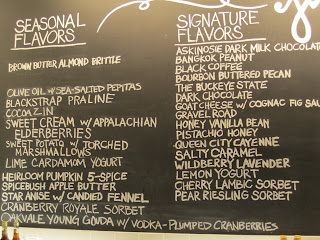 SEASONAL
FLAVORS
BROWN BUTTER ALMOND BRITTLE
OLIVE OIL W/ SEA-SALTED PEPITAS
BLACKSTRAP PRALINE
COCOA ZIN
SWEET CREAM W/ APPALACHIAN
ELDERBERRIES
SWEET POTATO W/ TORCHED
MARSHMALLOWS
LIME CARDAMOM YOGURT
HEIRLOOM PUMPKIN 5-SPICE
SPICEBUSH APPLE BUTTER
STAR ANISE W/ CANDIED FENNEL
CRANBERRY ROYALE SORBET
OAKVALE YOUNG GOUDA W/ VODKA-PLUMPED CRANBERRIES
SIGNATURE
FLAVORS
ASKINOSIE DARK MILK CHOCOLATE
BANGKOK PEANUT
BLACK COFFEE
BOURBON BUTTERED PECAN
THE BUCKEYE STATE
DARK CHOCOLATE
GOAT CHEESE W/ COGNAC FIG SAU
GRAVEL ROAD
HONEY VANILLA BEAN
PISTACHIO HONEY
QUEEN CITY CAYENNE
SALTY CARAMEL
WILDBERRY LAVENDER
LEMON YOGURT
CHERRY LAMBIC SORBET
PEAR RIESLING SORBET